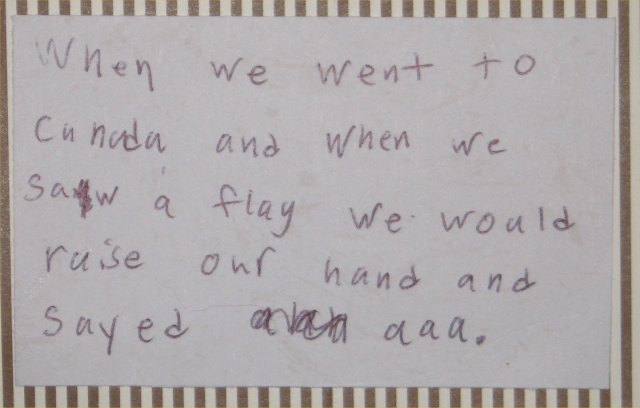 When we went to
Canada and when we
saw a flag we would
raise our hand and
sayed aaa.